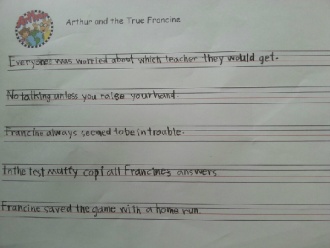 Arthur and the True Francine
Everyone was worried about which teacher they would get.
No talking unless you raise your hand.
Francine always seemed to be in trouble.
In the test muffy copi all Francines answers
Francine saved the game with a home run.